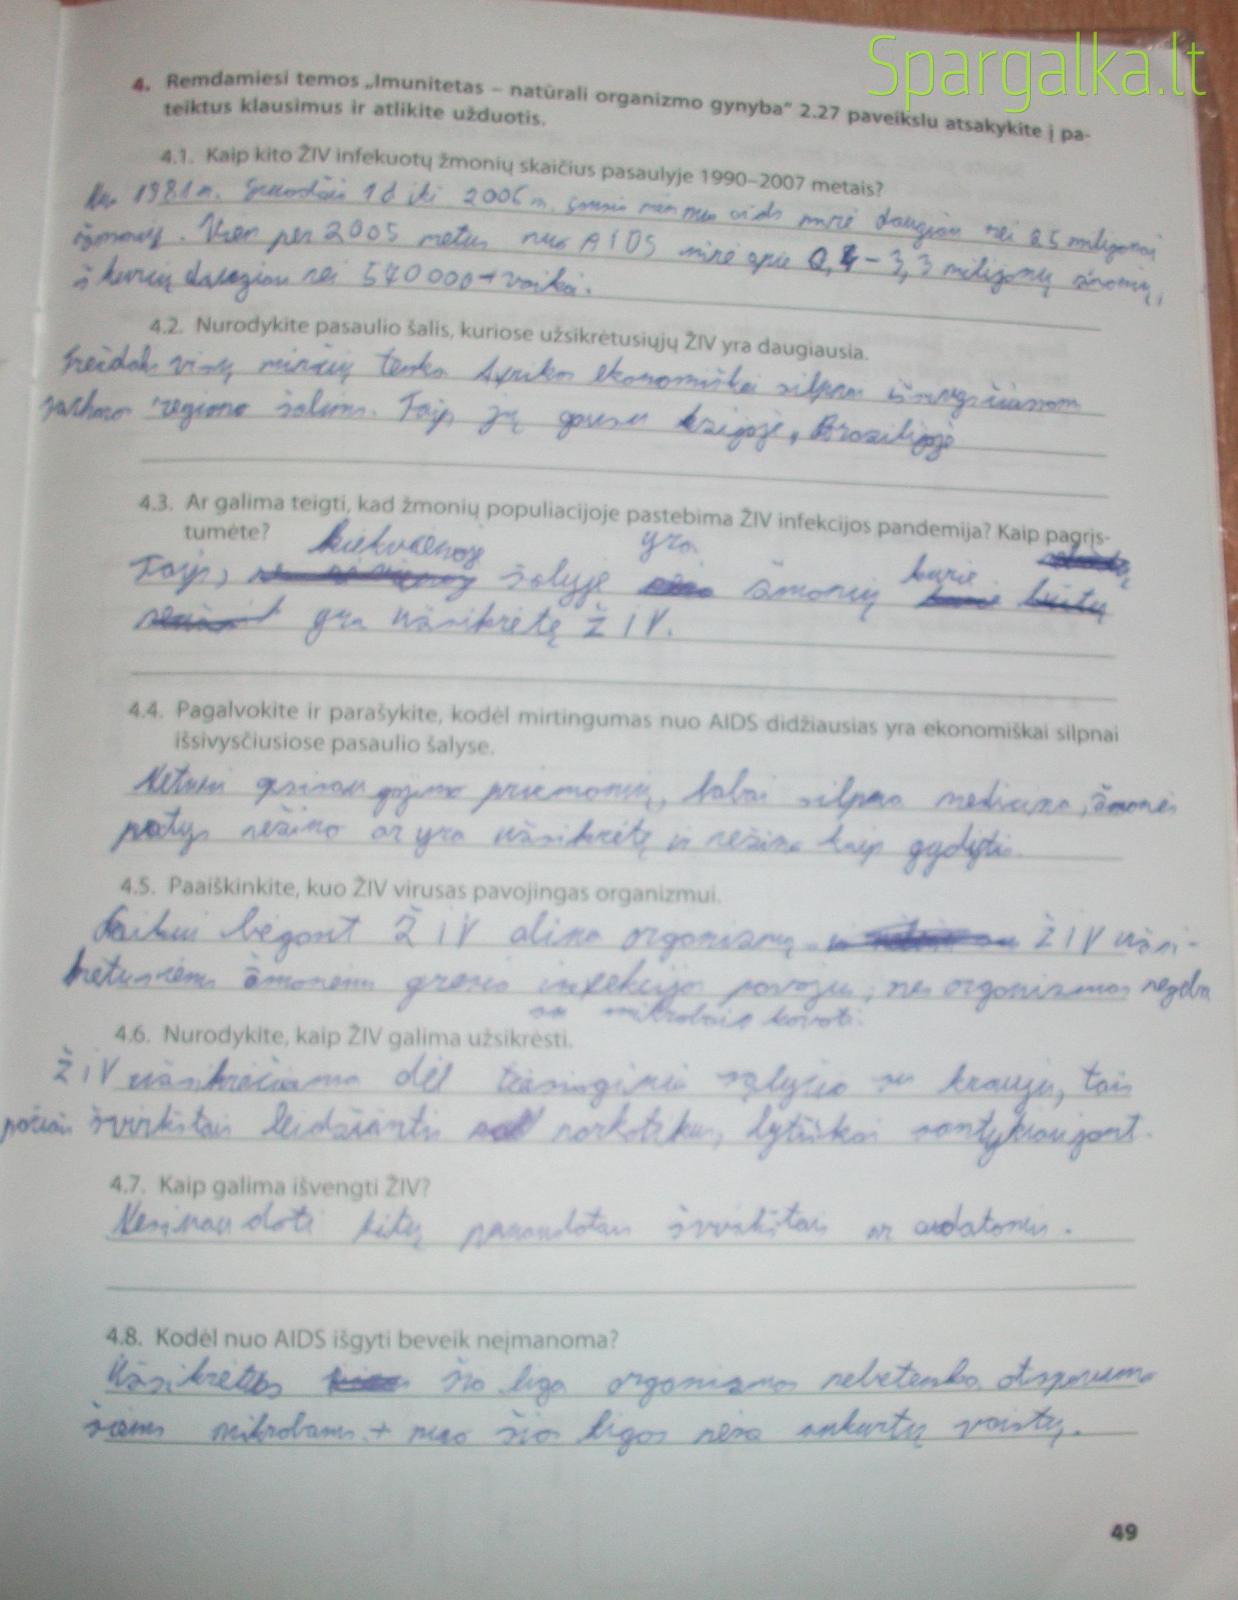 Spargalka.lt
4. Remdamiesi temos „Imunitetas – natūrali organizmo gynyba" 2.27 paveikslu atsakykite į pa-
teiktus klausimus ir atlikite užduotis.
4.1. Kaip kito ŽIV infekuotų žmonių skaičius pasaulyje 1990–2007 metais?
Nuo 1981 m. Gruodžio 1 d iki 2006 m. nuo mirė daugiau nei 25 milijonai
žmonių. Vien per 2005 metus nuo AIDS mirė apie 3,3 milijonų žmonių,
iš kurių daugiau nei 570 000 + vaikai.
4.2. Nurodykite pasaulio šalis, kuriose užsikrėtusiųjų ŽIV yra daugiausia.
visų mirčių tenka Afrikos ekonomiškai silpnai
regiono šalims. Taip jų gausu Azijoje, Brazilijoje
4.3. Ar galima teigti, kad žmonių populiacijoje pastebima ŽIV infekcijos pandemija? Kaip pagrįs-
tumėte?
Taip, kiekvienoje šalyje yra žmonių kurie
yra užsikrėtę ŽIV.
4.4. Pagalvokite ir parašykite, kodėl mirtingumas nuo AIDS didžiausias yra ekonomiškai silpnai
išsivysčiusiose pasaulio šalyse.
Neturi priemonių, labai silpna medicina, žmonės
patys nežino ar yra užsikrėtę ir nežino kaip gydytis.
4.5. Paaiškinkite, kuo ŽIV virusas pavojingas organizmui.
Laikui bėgant ŽIV alina organizmą ŽIV užsi-
kretusiems žmonėms gresia infekcijos pavojus, nes organizmas negeba
su mikrobais kovoti.
4.6. Nurodykite, kaip ŽIV galima užsikrėsti.
ŽIV užsikrečiama dėl tiesioginio sąlyčio su krauju, tais
pačiais švirkštais leidžiantis narkotikus, lytiškai santykiaujant.
4.7. Kaip galima išvengti ŽIV?
Nesinaudoti kitų panaudotais švirkštais ar adatomis.
4.8. Kodėl nuo AIDS išgyti beveik neįmanoma?
Užsikrėtus šia liga organizmas nebetenka atsparumo
šiems mikrobams + nuo šios ligos nėra sukurtų vaistų.
49